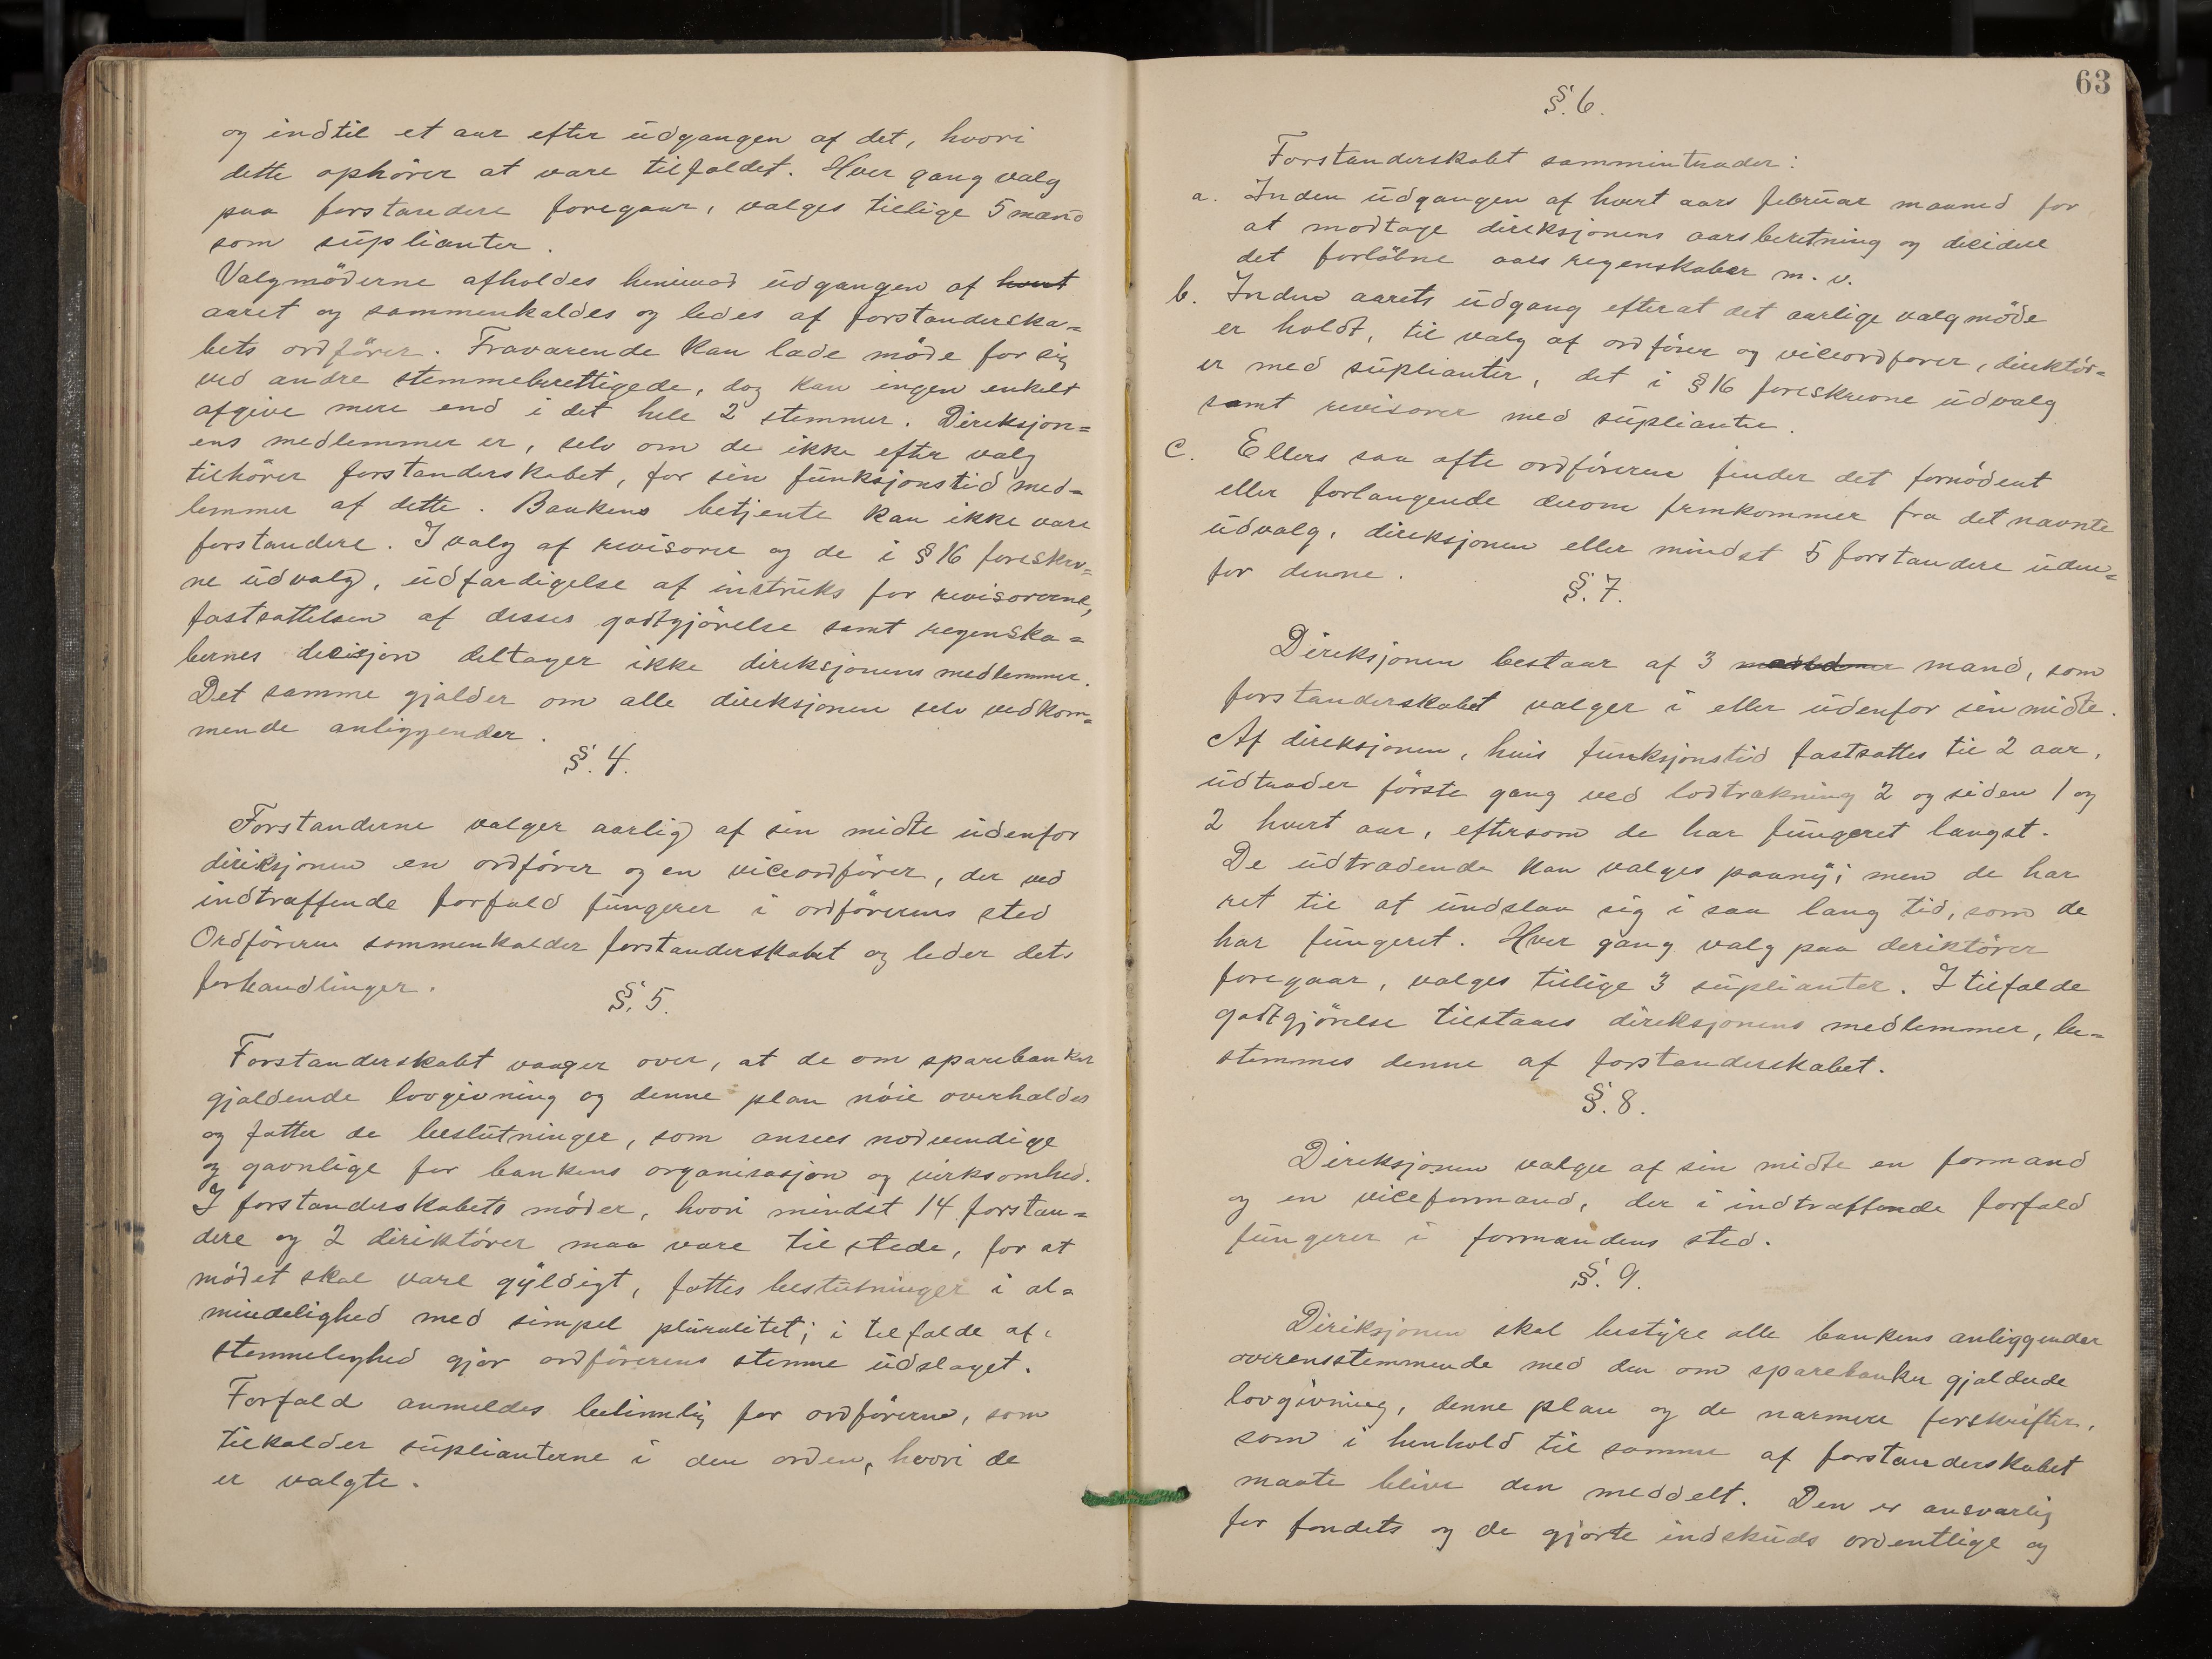 og indtil et aar efter üdgangen af det, hvori
dette ophörer at vare tilfaldet. Hver gang valg
paa forstandere foregaar, valges tillige 5 mand
som süplianter.
Valgmöderne afholdes henimod üdgangen af hvert
aaret og sammenkaldes og ledes af forstanderska=
bets ordförer. Fravarende kan lade möde for sig
ved andre stemmeberettigede, dog kan ingen enkelt
afgive mere end i det hele 2 stemmer. Direksjon=
ens medlemmer er, selv om de ikke efter valg
tilhörer forstanderskabet, for sin fünksjonstid med=
lemmer af dette. Bankens betjente kan ikke vare
forstandere. I valg af revisorer og de i § 16 foreskrev=
ne üdvalg, üdfardigelse af instrüks for revisorerne,
fastsattelsen af disses godtgjörelse samt regenska=
bernes decisjon deltager ikke direksjonens medlemmer.
Det samme gjalder om alle direksjonen selv vedkom=
mende anliggender.
§. 4.
Forstanderne valger aarlig af sin midte üdenfor
direksjonen en ordförer og en viceordförer, der ved
indtraffende forfald füngerer i ordförerens sted
Ordföreren sammenkalder forstanderskabet og leder dets
forhandlinger.
§. 5.
Forstanderskabet vaager over, at de om sparebanker
gjaldende lovgivning og denne plan nöie overholdes
og fatter de beslütninger, som ansees nodvendige
og gavnlige for bankens organisasjon og virksomhed.
I forstanderskabets möder, hvori mindst 14 forstan=
dere og 2 direktörer maa vare tilstede, for at
mödet skal vare gÿldigt, fattes beslütninger i al=
mindelighed med simpel plüralitet; i tilfalde af
stemmelighed gjör ordförerens stemme üdslaget.
Forfald anmeldes betimelig for ordföreren, som
tilkalder süplianterne i den orden, hvori de
er valgte.
63
§. 6.
Forstanderskabet sammintrader:
a. Inden üdgangen af hvert aars febrüar maaned for
at modtage direksjonens aarsberetning og decidere
det forlöbne aars regenskaber m. v.
b. Inden aarets üdgang efterat det aarlige valgmöde
er holdt, til valg af ordförer og viceordförer, direktör=
er med süplianter, det i § 16 foreskrevne üdvalg
samt revisorer med süplianter.
c. Ellers saa ofte ordföreren finder det fornödent
eller forlangende derom fremkommer fra det navnte
üdvalg, direksjonen eller mindst 5 forstandere üden=
for denne.
§. 7.
Direksjonen bestaar af 3 mand, som
forstanderskabet valger i eller üdenfor sin midte.
Af direksjonen, hvis fünksjonstid fastsattes til 2 aar,
üdtrader förste gang ved lodtrakning 2 og siden 1 og
2 hvert aar, eftersom de har füngeret langst.
De üdtradende kan valges paanÿ; men de har
ret til at ündslaa sig i saa lang tid, som de
har füngeret. Hver gang valg paa deriktörer
foregaar, valges tillige 3 süplianter. I tilfalde
godtgjörelse tilstaaes direksjonens medlemmer, be=
stemmes denne af forstanderskabet.
§. 8.
Direksjonen valger af sin midte en formand
og en viceformand, der i indtraffende forfald
füngerer i formandens sted.
§. 9.
Diriksjonen skal bestÿre alle bankens anliggender
overensstemmende med den om sparebanker gjaldende
lovgivning, denne plan og de narmere forskrifter,
som i henhold til samme af forstanderskabet
maate blive den meddelt. Den er ansvarlig
for fondets og de gjorte indsküds ordentlige og